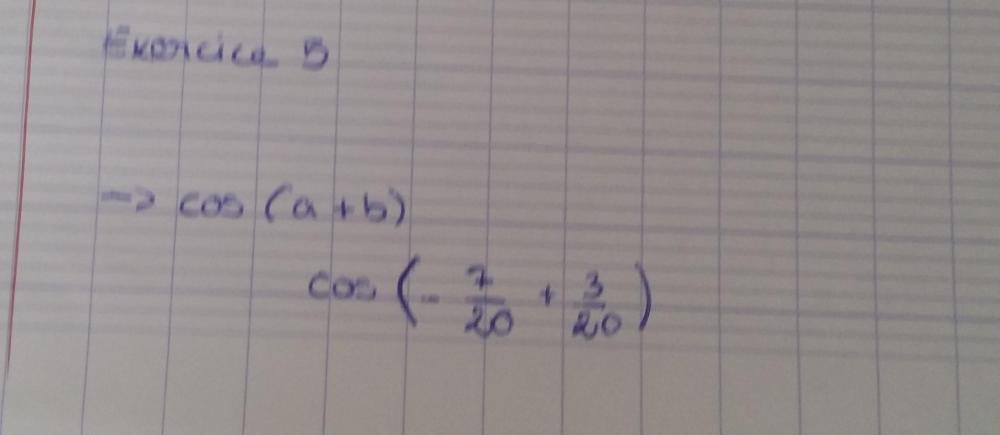 Exercice 5
-> cos (a+b)
cos (- 7/20 + 3/20)